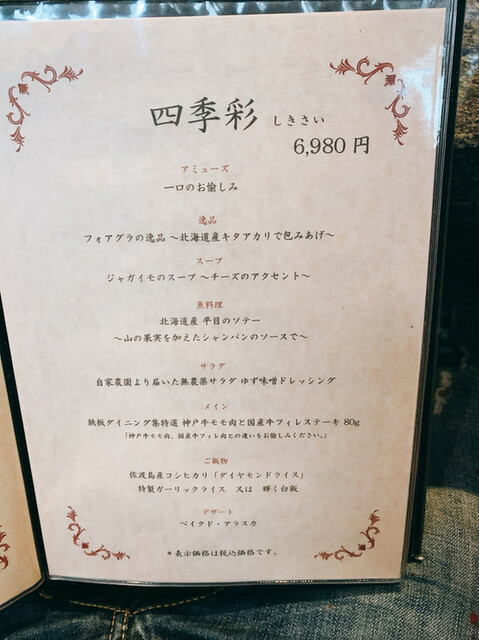 四季彩 しきさい
6,980 円
アミューズ
一口のお愉しみ
逸品
フォアグラの逸品 ～北海道産キタアカリで包みあげ～
スープ
ジャガイモのスープ ～チーズのアクセント～
魚料理
北海道産 平目のソテー
～山の果実を加えたシャンパンのソースで～
サラダ
自家農園より届いた無農薬サラダ ゆず味噌ドレッシング
メイン
鉄板ダイニング集特選 神戸牛モモ肉と国産牛フィレステーキ 80g
「神戸牛モモ肉、国産牛フィレ肉との違いをお愉しみください。」
ご飯物
佐渡島産コシヒカリ「ダイヤモンドライス」
特製ガーリックライス 又は 輝く白飯
デザート
ベイクド・アラスカ
＊表示価格は税込価格です。